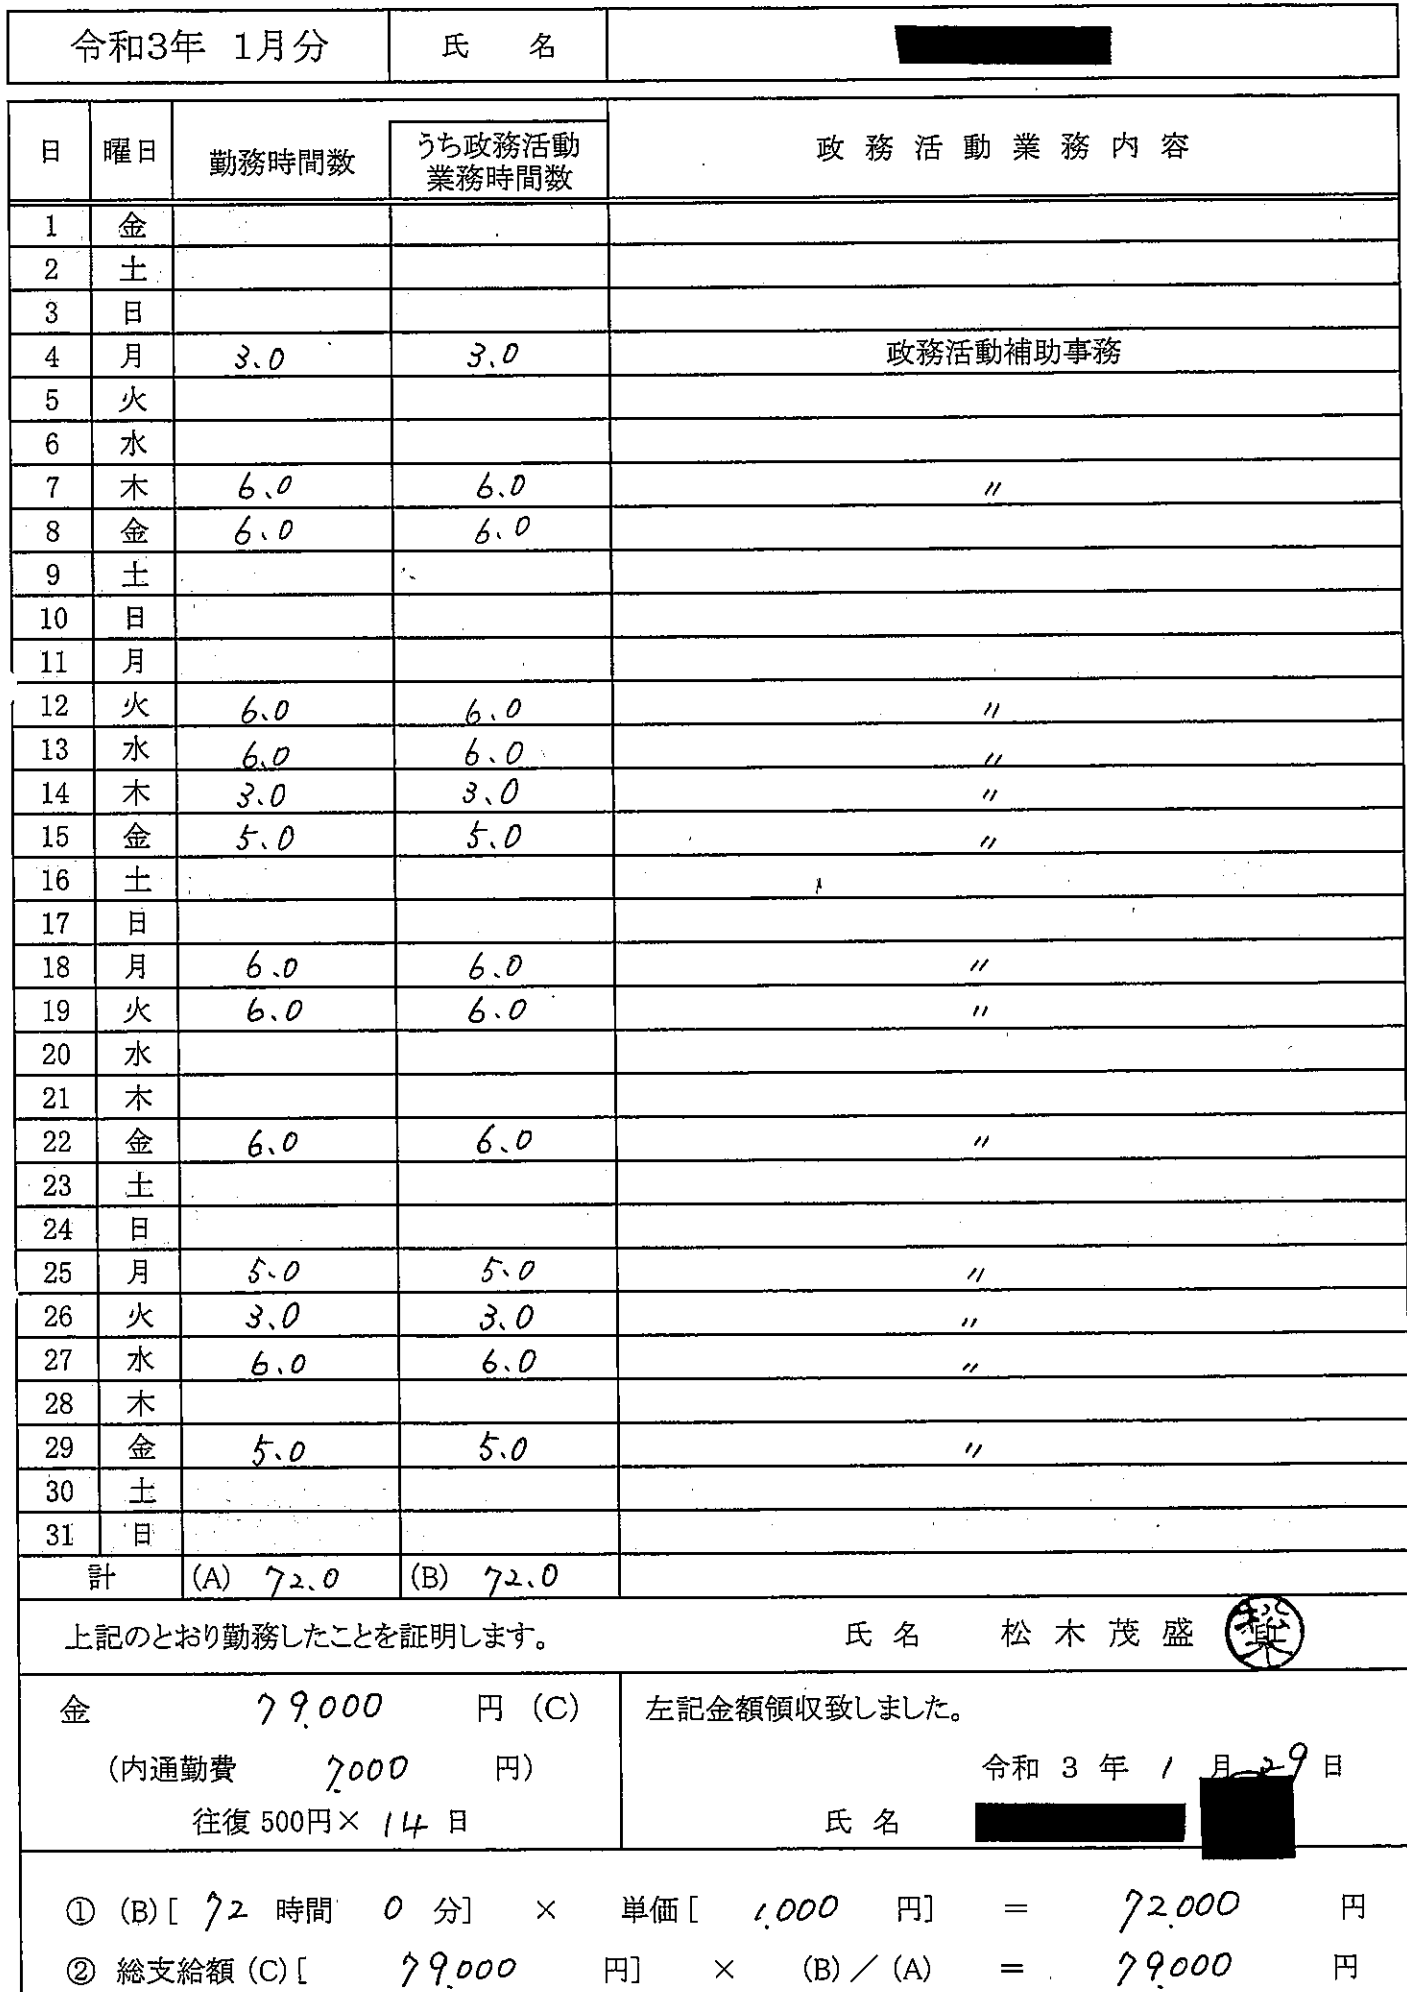 令和3年 1月分 氏 名
日 曜日 勤務時間数 うち政務活動業務時間数 政務活動業務内容
1 金
2 土
3 日
4 月 3.0 3.0 政務活動補助事務
5 火
6 水
7 木 6.0 6.0 〃
8 金 6.0 6.0
9 土
10 日
11 月
12 火 6.0 6.0 〃
13 水 6.0 6.0 〃
14 木 3.0 3.0 〃
15 金 5.0 5.0 〃
16 土
17 日
18 月 6.0 6.0 〃
19 火 6.0 6.0 〃
20 水
21 木
22 金 6.0 6.0 〃
23 土
24 日
25 月 5.0 5.0 〃
26 火 3.0 3.0 〃
27 水 6.0 6.0 〃
28 木
29 金 5.0 5.0 〃
30 土
31 日
計 (A) 72.0 (B) 72.0
上記のとおり勤務したことを証明します。 氏 名 松 木 茂 盛
金 79,000 円 (C) 左記金額領収致しました。
(内通勤費 7,000 円) 令和 3 年 1 月 29 日
往復 500円× 14 日 氏 名
① (B) [ 72 時間 0 分] × 単価 [ 1,000 円] = 72,000 円
② 総支給額 (C) [ 79,000 円] × (B) / (A) = 79,000 円